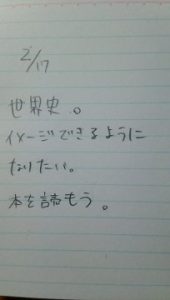 2/17
世界史。
イメージできるように
なりたい。
本を読もう。